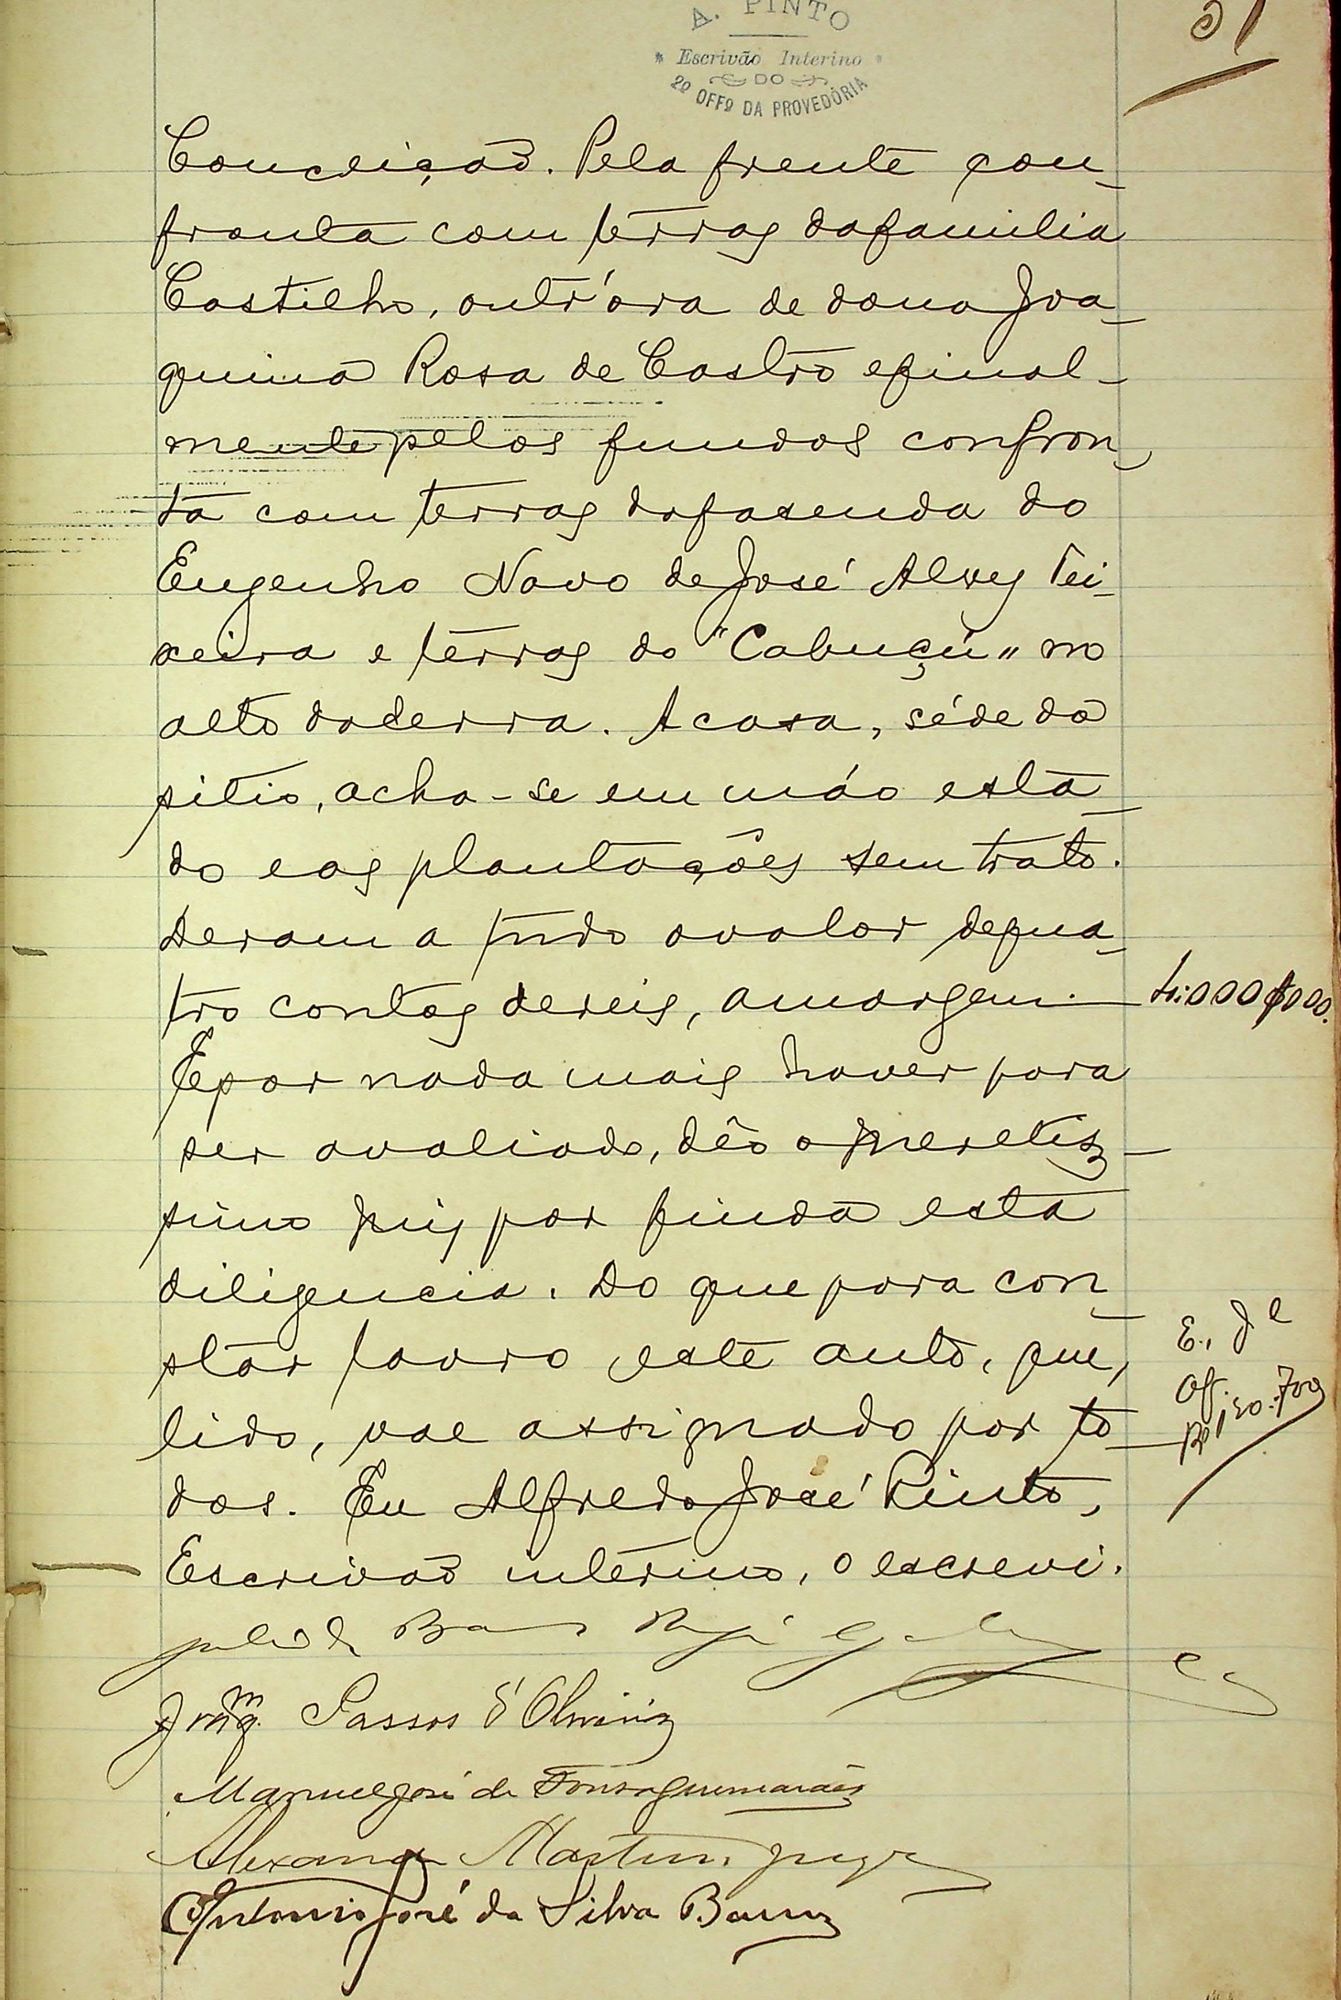 A. PINTO
Escrivão Interino
DO
2º OFFº DA PROVEDÓRIA
Conceição. Pela frente con-
fronta com terras da familia
Castilho, outr'óra de dona Joa-
quina Rosa de Castro e final-
mente pelos fundos confron-
ta com terras da fasenda do
Engenho Novo de José Alves Tei-
xeira e terras do "Cabuçú" no
alto da serra. A casa, séde do
sitio, acha-se em máo esta-
do e as plantações sem trato.
Deram a tudo o valor de qua-
tro contos de reis, a margem. 4:000$000.
E por nada mais haver para
ser avaliado, dêo o Meretis-
simo Juiz por finda esta
diligencia. Do que para con-
star lavro este auto, que,
lido, vae assignado por to-
dos. Eu Alfredo José Pinto,
Escrivão interino, o escrevi.
Joaqm Passos d'Oliveira
Manuel José da Fonsª Guimarães
Martins
Antonio José da Silva